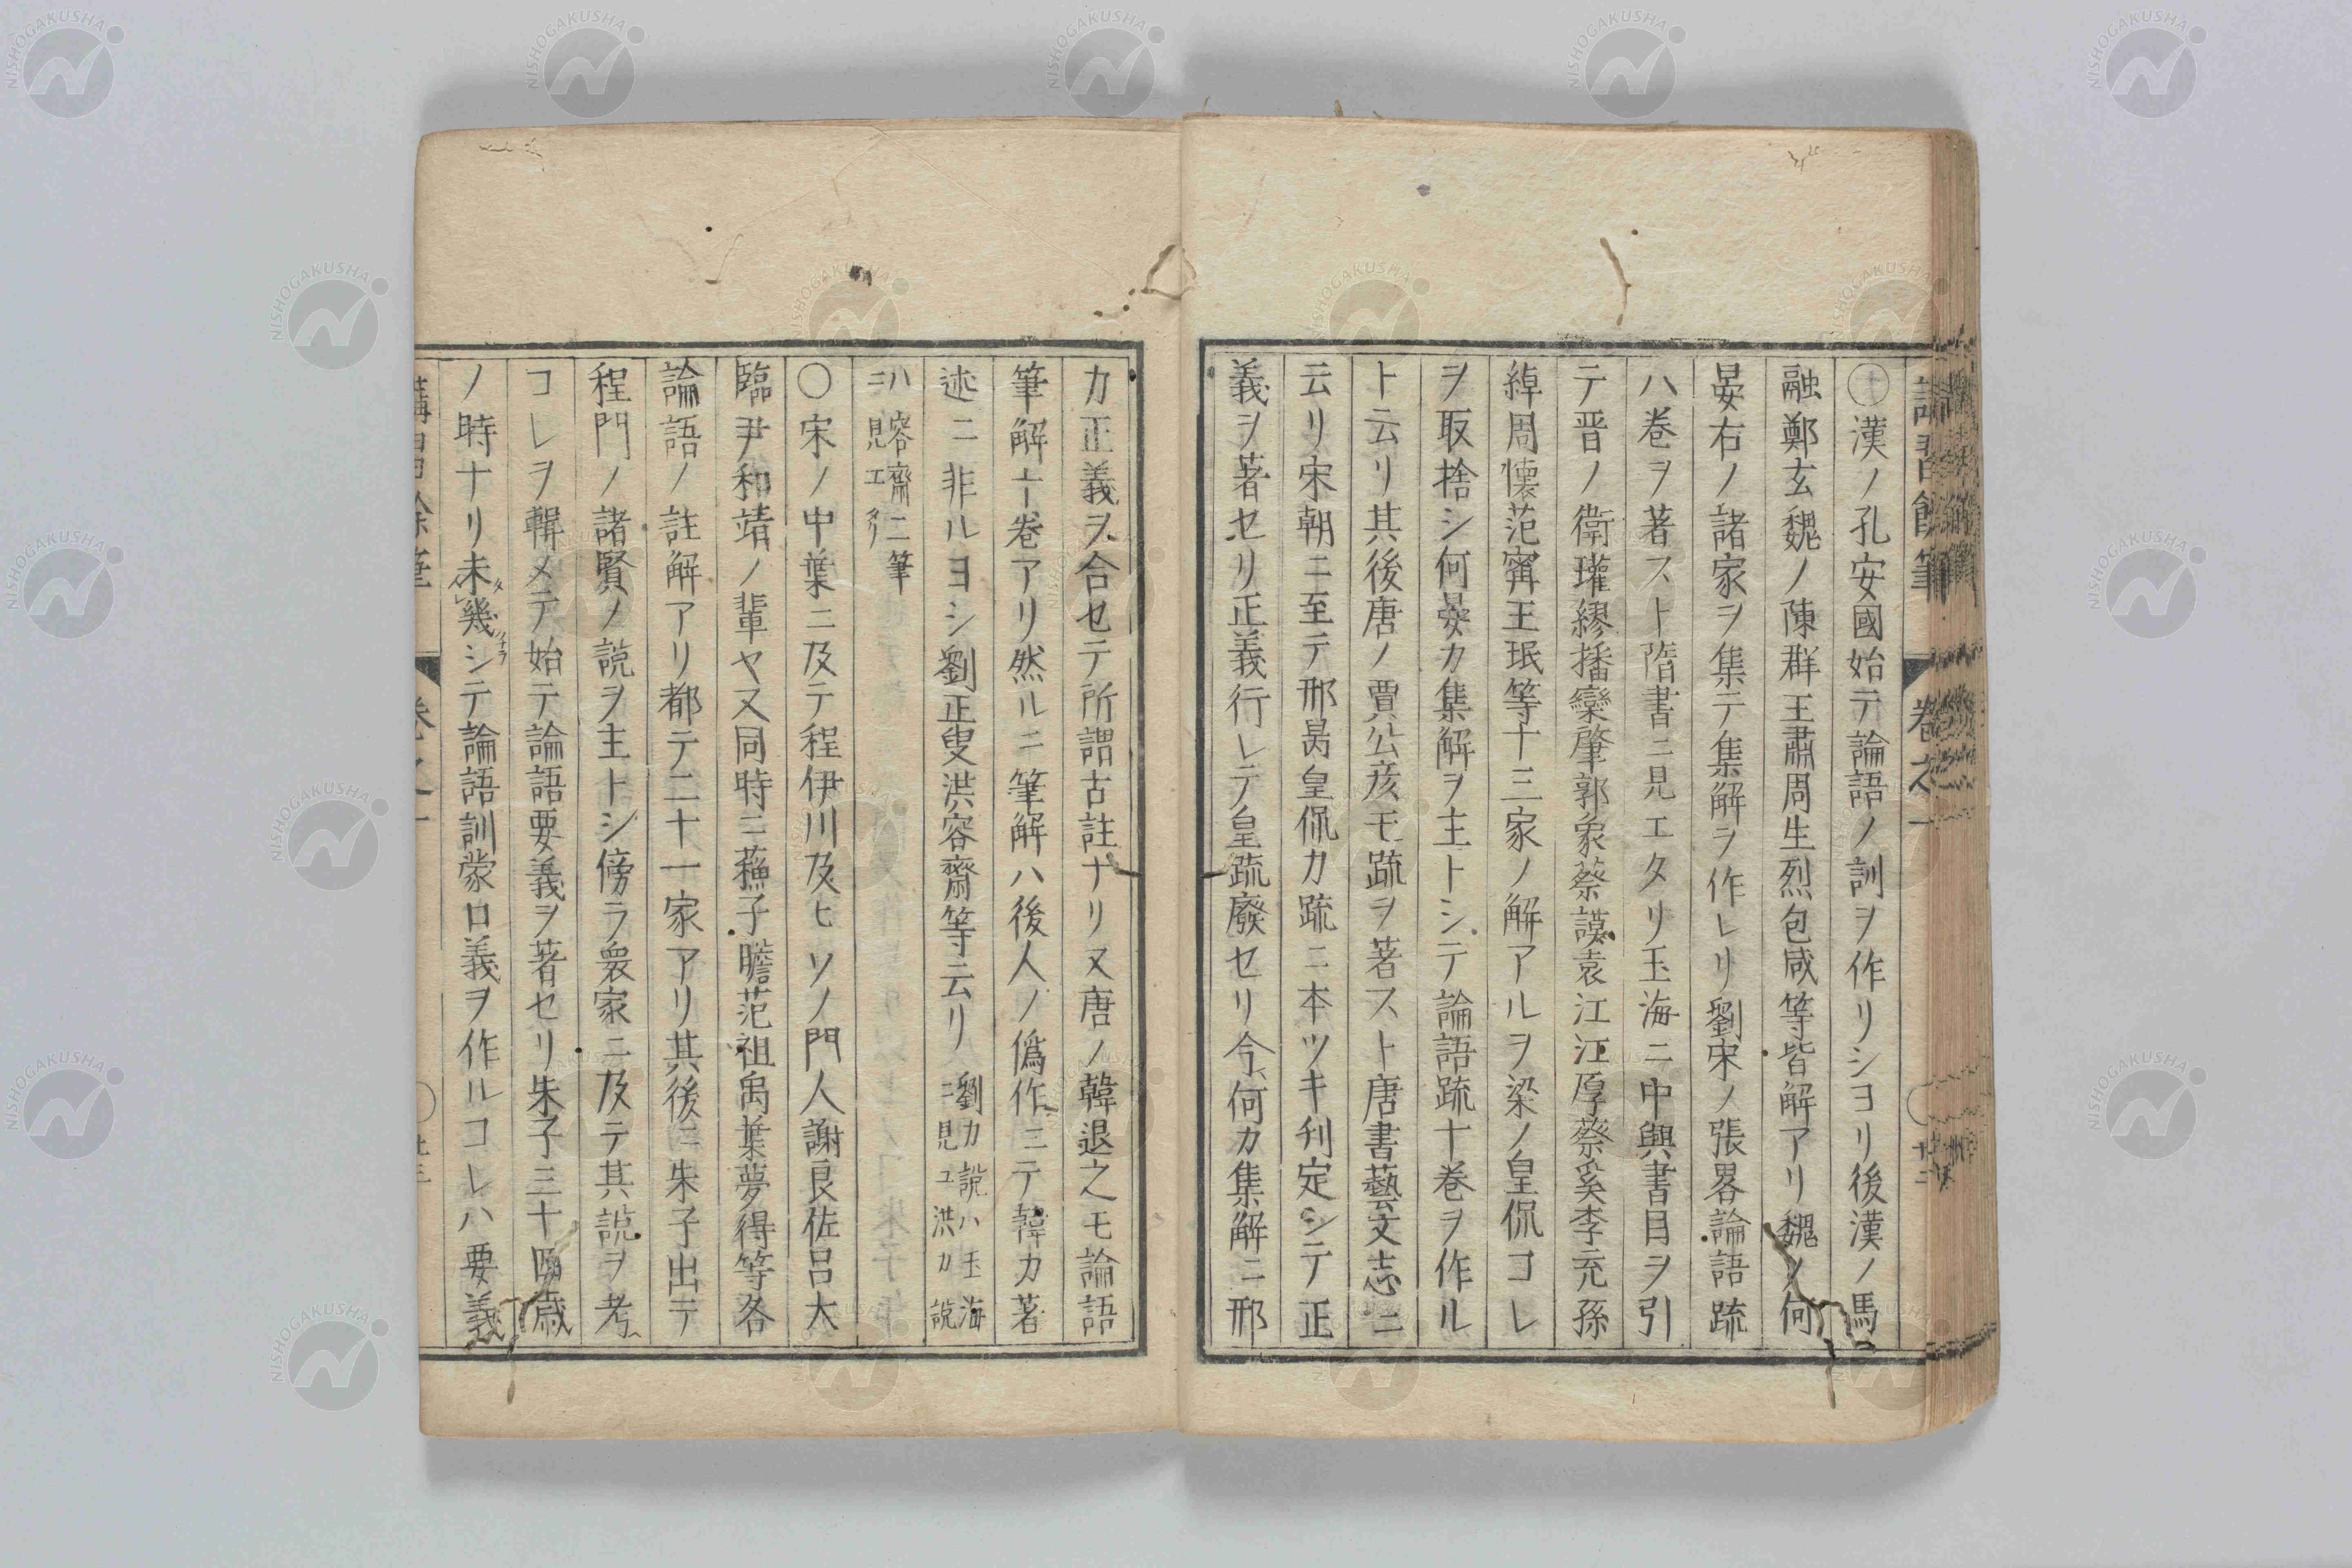 ○漢ノ孔安國始テ論語ノ訓ヲ作リシヨリ後漢ノ馬
融鄭玄魏ノ陳群王肅周生烈包咸等皆解アリ魏ノ何
晏右ノ諸家ヲ集テ集解ヲ作レリ劉宋ノ張畧論語疏
八巻ヲ著スト隋書ニ見エタリ玉海ニ中興書目ヲ引
テ晋ノ衛瓘繆播欒肇郭象蔡謨袁江江厚蔡奚李充孫
綽周懐范甯王珉等十三家ノ解アルヲ梁ノ皇侃コレ
ヲ取捨シ何晏カ集解ヲ主トシテ論語疏十巻ヲ作ル
ト云リ其後唐ノ賈公彦モ疏ヲ著スト唐書藝文志ニ
云リ宋朝ニ至テ邢昺皇侃カ疏ニ本ツキ刋定シテ正
義ヲ著セリ正義行レテ皇疏廢セリ今何カ集解ニ邢
カ正義ヲ合セテ所謂古註ナリ又唐ノ韓退之モ論語
筆解十巻アリ然ルニ筆解ハ後人ノ偽作ニテ韓カ著
述ニ非ルヨシ劉正叟洪容齋等云リ劉カ説ハ玉海ニ見エ洪カ説
ハ容齋二筆ニ見エタリ
○宋ノ中葉ニ及テ程伊川及ヒソノ門人謝良佐呂大
臨尹和靖ノ輩ヤ又同時ニ蘓子瞻范祖禹葉夢得等各
論語ノ註解アリ都テ二十一家アリ其後ニ朱子出テ
程門ノ諸賢ノ説ヲ主トシ傍ラ衆家ニ及テ其説ヲ考
コレヲ輯メテ始テ論語要義ヲ著セリ朱子三十四歳
ノ時ナリ未タ幾ナラシテ論語訓蒙口義ヲ作ルコレハ要義
講習餘筆
巻之一